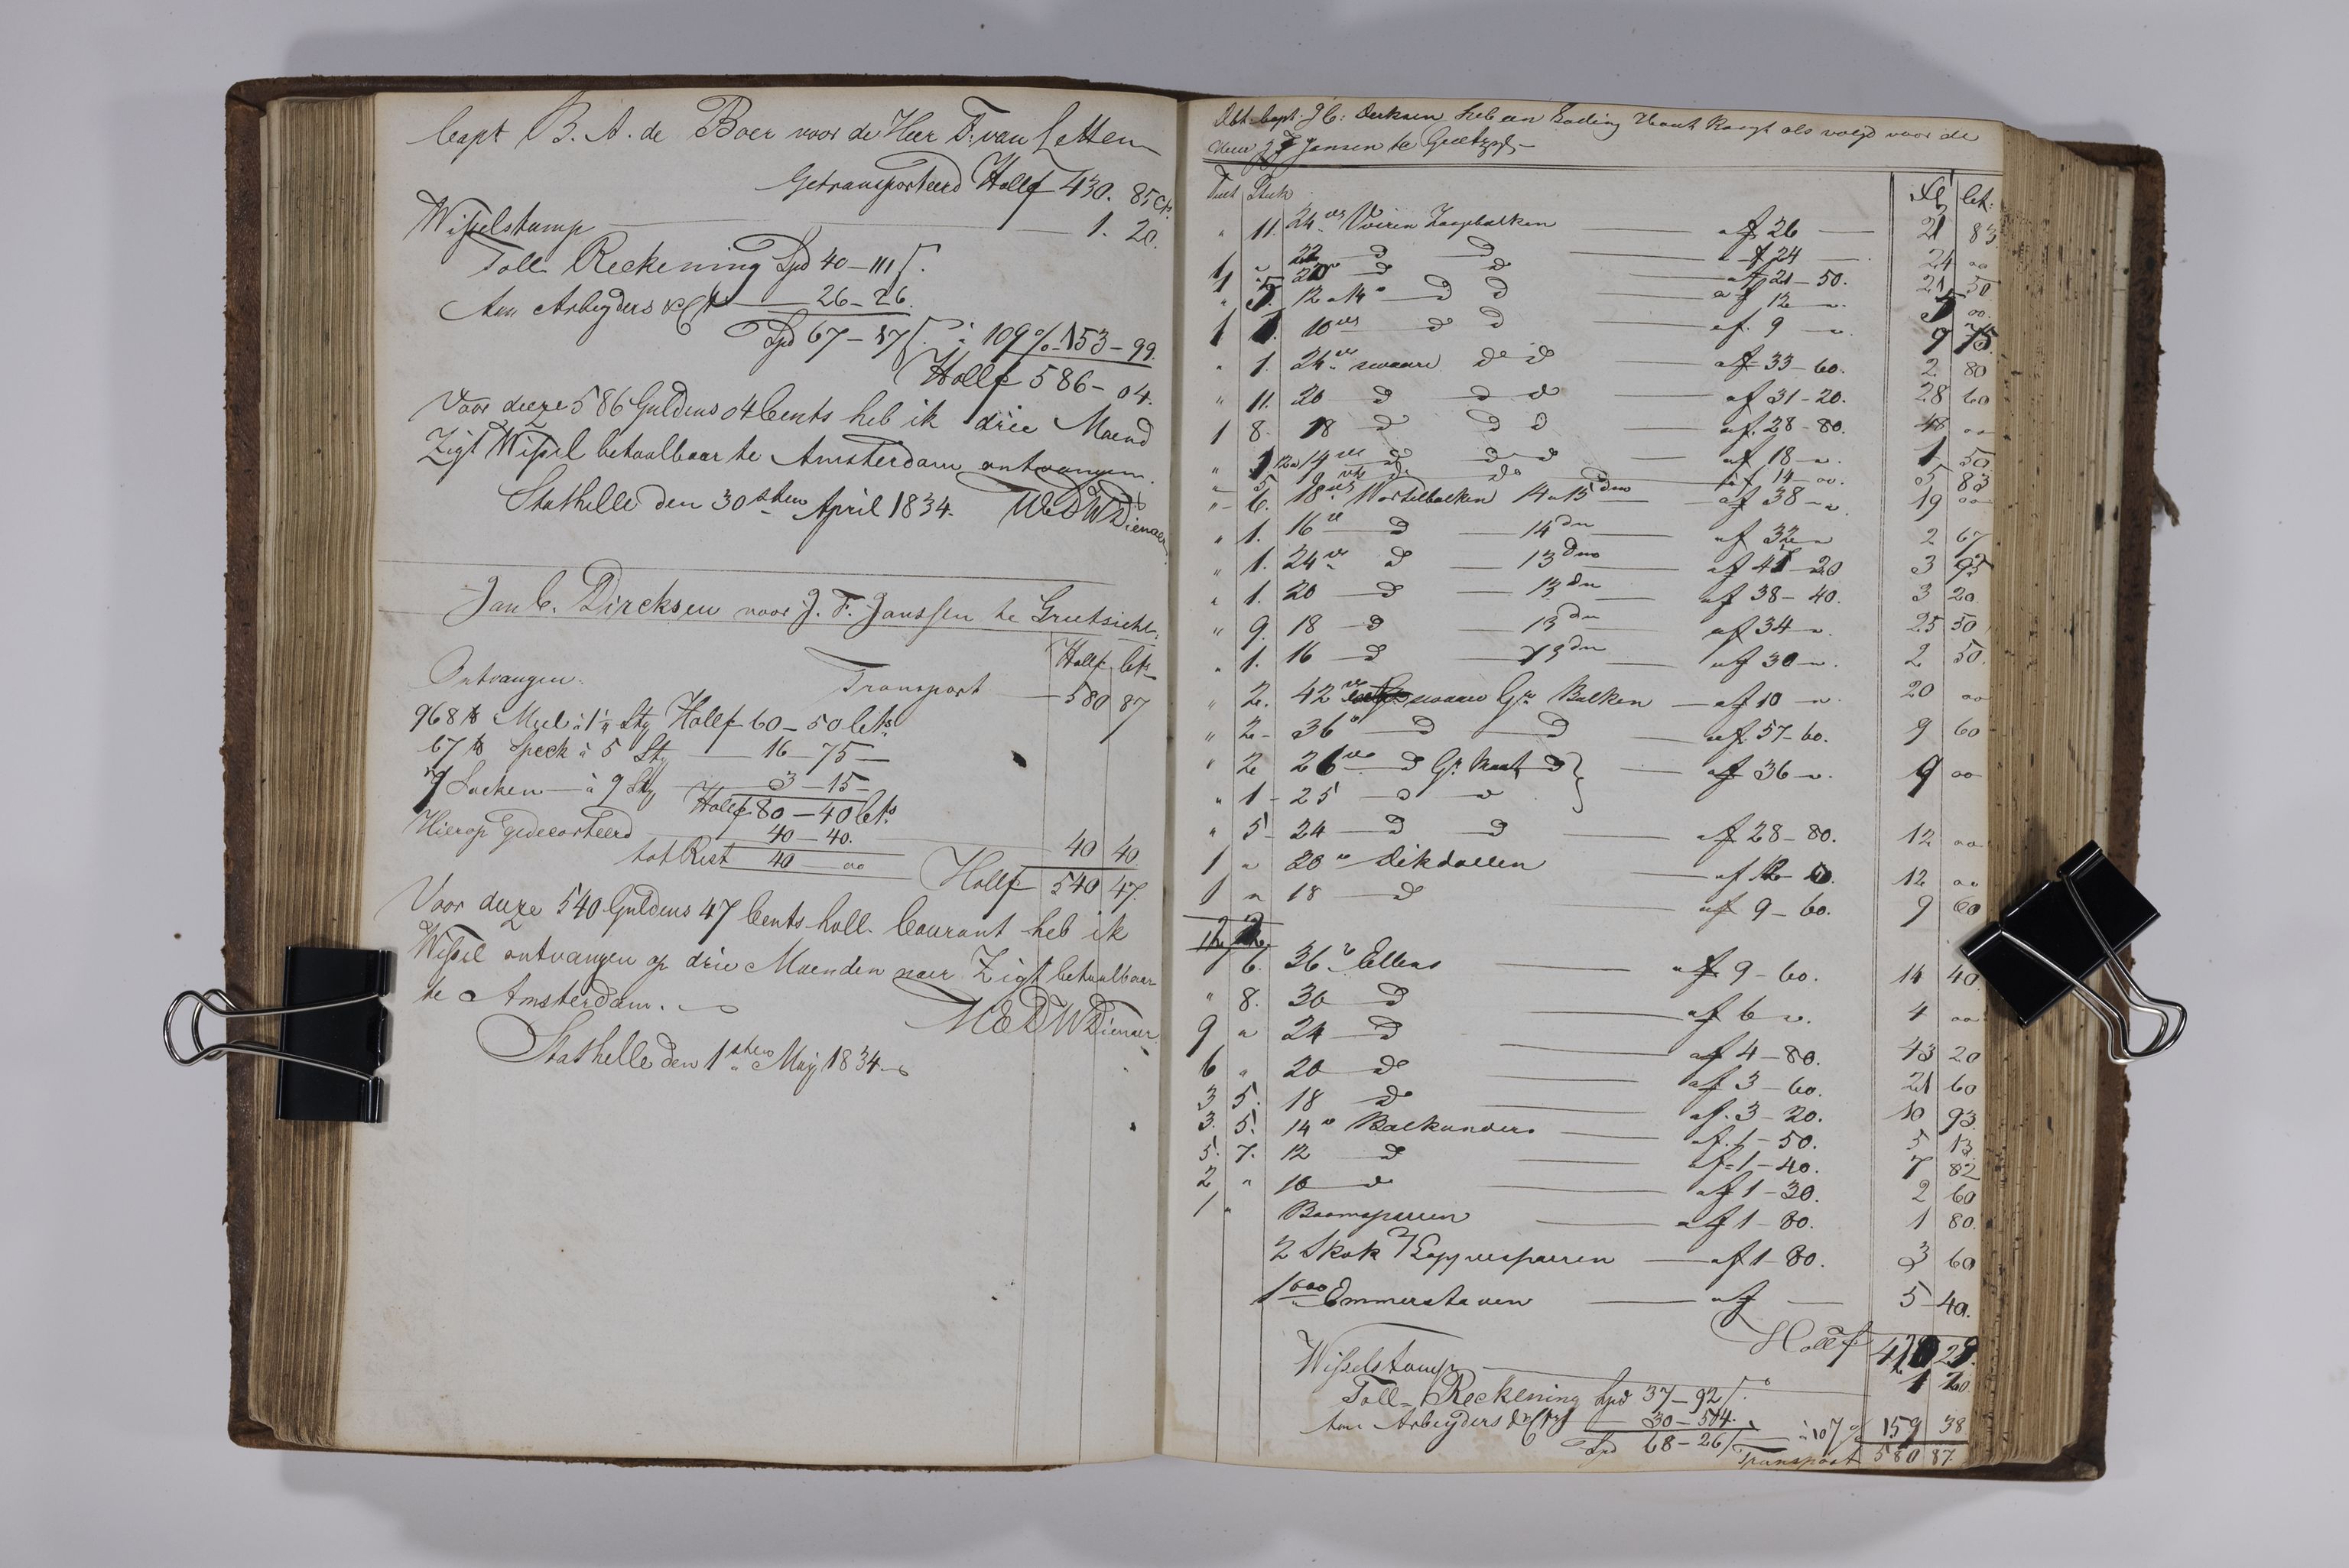 Capt B. A. de Boer voor de Heer D. van Letten
Getransporteerd Hollf 430. 85 Ct.
Wisselstamp 1. 20.
Toll Reckening Spd 40 — 111 ſ.
Aan Arbeyders 26 — 26.
Spd 67 — 17 ſ. à 109 % 153 — 99.
Hollf 586 — 04.
Voor deeze 586 Guldens 04 Cents heb ik drie Maend
Zigt Wissel betaalbaar te Amsterdam ontvangen.
Stathelle den 30sten April 1834. WDienaer
Jan C. Dircksen voor J. F. Janssen te Greetsiehl.
Hollf Cts
Ontvangen. Transport 580 87
968 ℔ Meel à 1¼ Sty Hollf 60 — 50 Cts
67 ℔ Speck à 5 Sty — 16 — 75 —
7 Sacken — à 9 Sty 3 — 15 —
Hollf 80 — 40 Cts
Hierop gedecorteerd 40 — 40. 40 40
tot Rest 40 — 00 Hollf 540 47.
Voor deeze 540 Guldens 47 Cents holl. Courant heb ik
Wissel ontvangen op drie Maenden naer Zigt betaalbaar
te Amsterdam.
WDienaer
Stathelle den 1sten May 1834.
Capt. J C: Derksen heb een Lading Hout Koogt als volgd voor de
Heer J F Jansen te Greetzyhl
Tult Stuk Ct:
" 11. 24 vs Vuiren Zaagbalken af 26 — 21 83
1 " 22 d d af 24 — 24 00
1 " 20 d d af 21 — 50. 21 50
" 5. 12 a 14 " d d af 12 — " 5 00.
1 1. 10 vs d d af. 9 — " 9 75.
" 1. 24 vs swaare d d af 33 — 60. 2 80
" 11. 20 d d d af 31 — 20. 28 60
1 8. 18 d d d af. 28 — 80. 48 00
" 1 12 a 14 vs d d af 18 — ". 1 50.
" 5. 9 vs d d af 14 — 00. 5 83
" 6. 18 vs Wortelbalken 14 a 15 dm af 38 — " 19 00
" 1. 16 " d — 14 dm af 32 " 2 67
" 1. 24 vs d — 13 dm af 47 — 20 3 93
" 1. 20 d — 13 dm af 38 — 40. 3 20.
" 9. 18 d — 13 dm af 34 — ". 25 50
" 1. 16 d — 13 dm af 30 — ". 2 50.
" 2. 42 vs swaare Gr. Balken — af 10 — " 20 00
" 2 — 36 " d d af. 57 — 60. 9 60
" 2 26 vs d Gr. d af 36 — ". 9 00
" 1 — 25 d "
" 5 — 24 d d af 28 — 80. 12 00
1 " 20 " Dikdallen af 12 — 0. 12 00
1 " 18 d af 9 — 60. 9 60
12
1 6. 36 " Ellens af 9 — 60. 14 40.
" 8. 30 d af 6 ". 4 00
9 " 24 d af 4 — 80. 43 20
6 " 20 d af 3 — 60. 21 60
3 5. 18 d af. 3 — 20. 10 93.
3. 5. 14 " Balkunders af. 1 — 50. 5 13
5. 7. 12 d af — 1 — 40. 7 82
2 " 10 d af 1 — 30. 2 60
1 " Boomsparren af 1 — 80. 1 80.
2 Skok Lappersparren af 1 — 80. 3 60
1000 Emmerstaven af — 5 40.
Hollf 420 29.
Wisselstamp 1 20.
Toll Reckening Spd 37 — 92 ſ.
Aan Arbeyders 30 — 54.
Spd 68 — 26 ſ à 107 % 159 38
Transport 580 87.